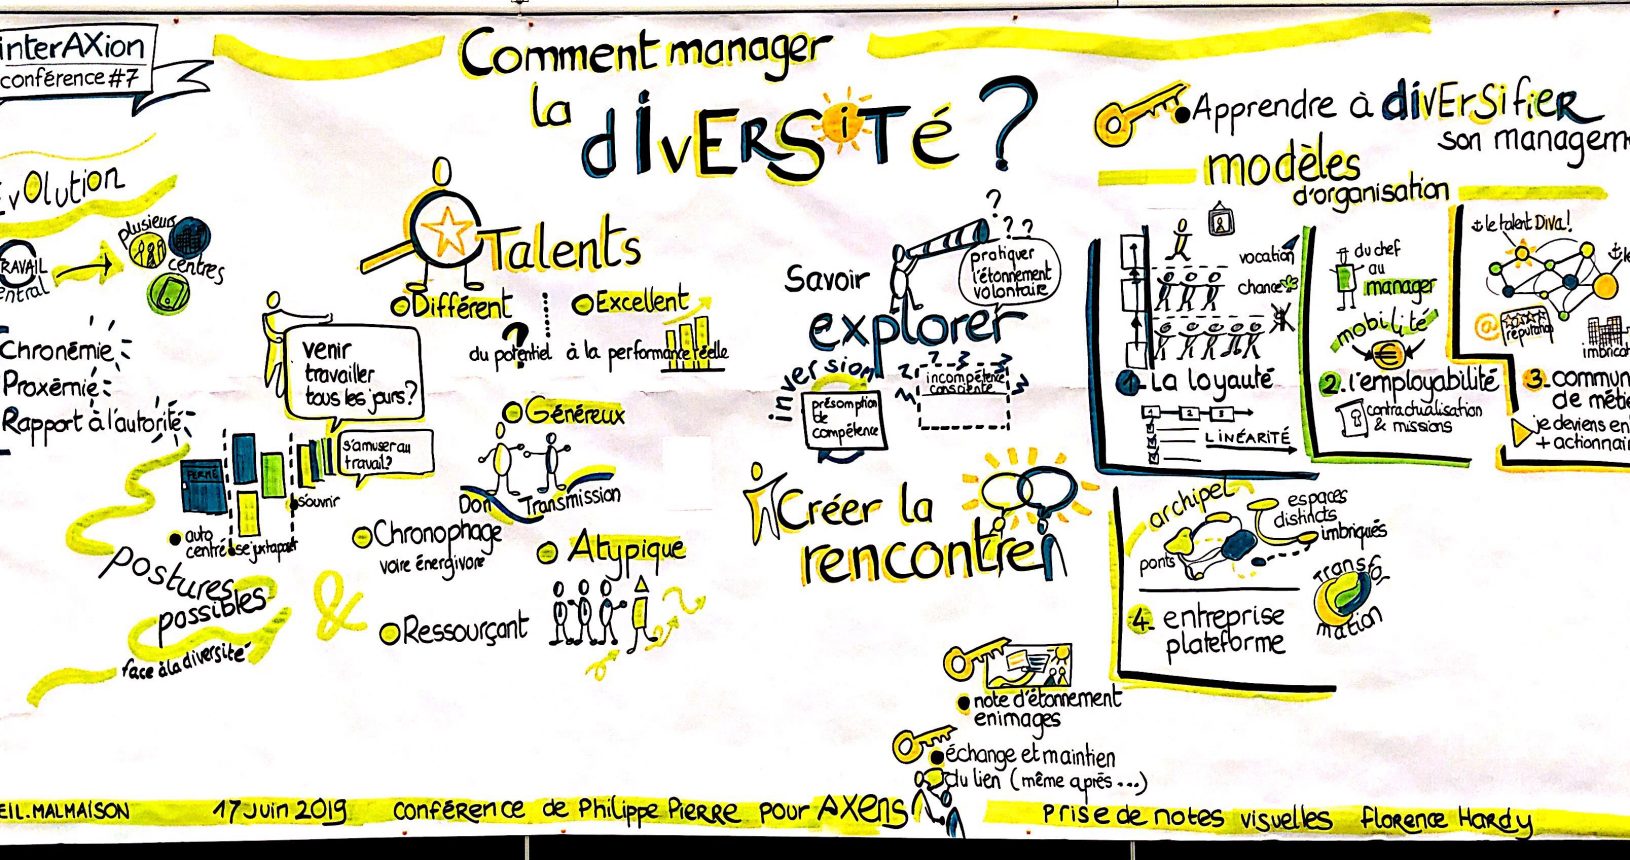 interAXion
conférence #7
Comment manager
la
diVERSiTé ?
évOlution
TRAVAIL
central
plusieurs
centres
Chronémie
Proxémie
Rapport à l'autorité
venir
travailler
tous les jours?
s'amuser au
travail?
FERMÉ
auto
centré
se juxtaposer
s'ouvrir
postures
possibles
face à la diversité
&
Talents
Différent
Excellent
?
du potentiel à la performance réelle
Généreux
Don
Transmission
Chronophage
voire énergivore
Atypique
Ressourçant
Savoir
explorer
? ? ?
pratiquer
l'étonnement
volontaire
inversion
présomption
de
compétence
incompétence
consciente
Créer la
rencontre
note d'étonnement
en images
échange et maintien
du lien (même après...)
Apprendre à diVErSifiER
son managem
modèles
d'organisation
vocation
chance
1. La loyauté
1 2 3
LINÉARITÉ
du chef
au
manager
mobilité
2. l'employabilité
contractualisation
& missions
le talent Diva!
@
réputation
imbricat
3. commun
de métie
je deviens en
+ actionnair
archipel
espaces
distincts
imbriqués
ponts
4. entreprise
plateforme
Transformation
EIL.MALMAISON
17 Juin 2019
conférence de Philippe Pierre pour AXENS
Prise de notes visuelles Florence Hardy